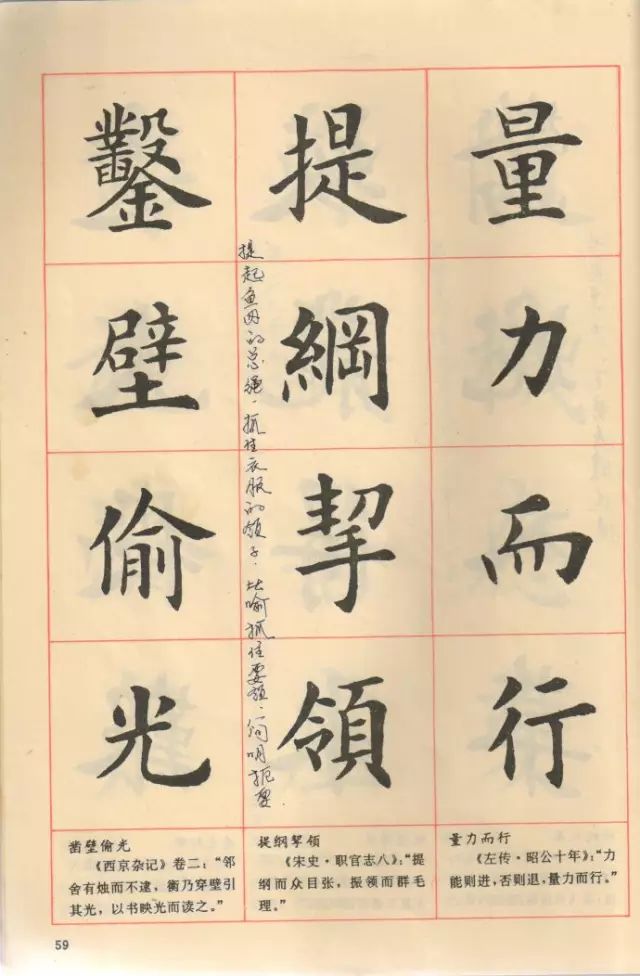 量力而行
提綱挈領
鑿壁偷光
提起鱼网的总绳，抓住衣服的领子。比喻抓住要领，简明扼要。
凿壁偷光
《西京杂记》卷二：“邻
舍有烛而不逮，衡乃穿壁引
其光，以书映光而读之。”
提纲挈领
《宋史·职官志八》：“提
纲而众目张，振领而群毛
理。”
量力而行
《左传·昭公十年》：“力
能则进，否则退，量力而行。”
59